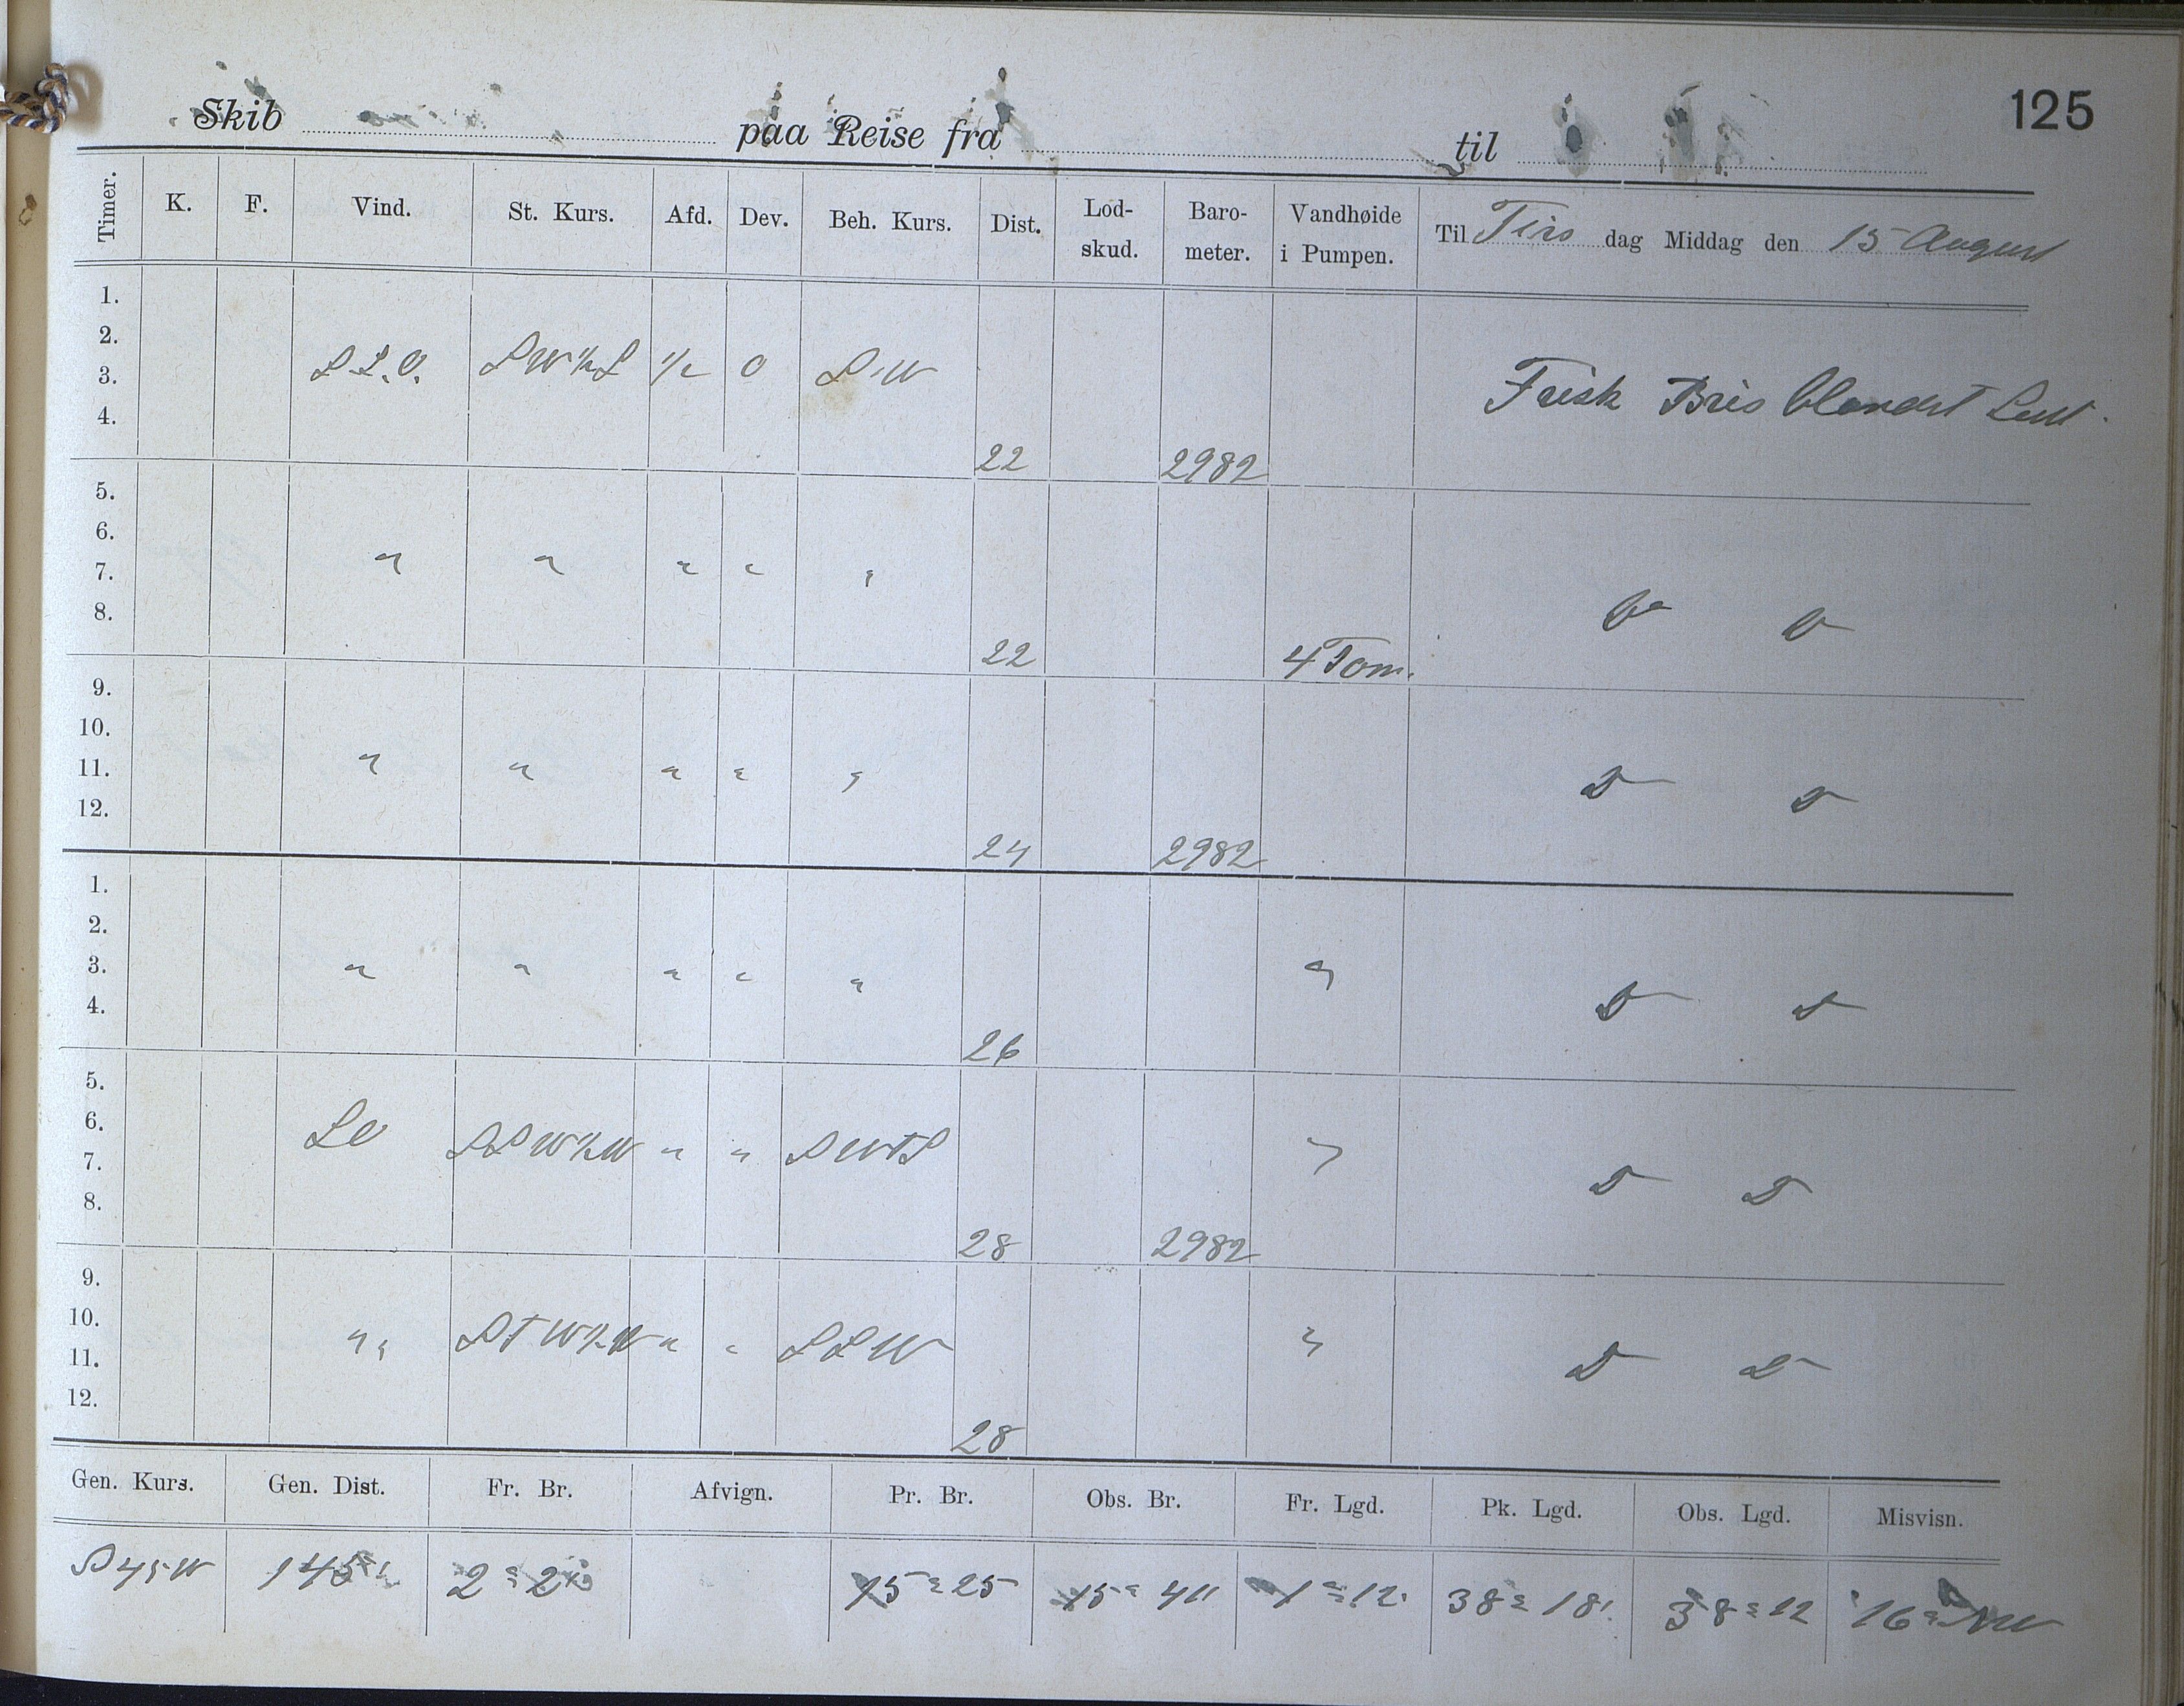 125
Skib paa Reise fra til
Timer. K. F. Vind. St. Kurs. Afd. Dev. Beh. Kurs. Dist. Lod-skud. Baro-meter. Vandhøide i Pumpen. Til Tirs dag Middag den 15 August
1.
2.
3. S.S.O. SW½S ½ 0 S.W Frisk Bris blandet Luft.
4. 22 2982
5.
6.
7. " " " " " Do Do
8. 22 4 Tom.
9.
10.
11. " " " " " Do Do
12. 24 2982
1.
2.
3. " " " " " " Do Do
4. 26
5.
6. SO SSW½W " " SWTS " Do Do
7.
8. 28 2982
9.
10. " STW½W " " SSW " Do Do
11.
12. 28
Gen. Kurs. Gen. Dist. Fr. Br. Afvign. Pr. Br. Obs. Br. Fr. Lgd. Pk. Lgd. Obs. Lgd. Misvisn.
145 15 25 15 38 18' 16